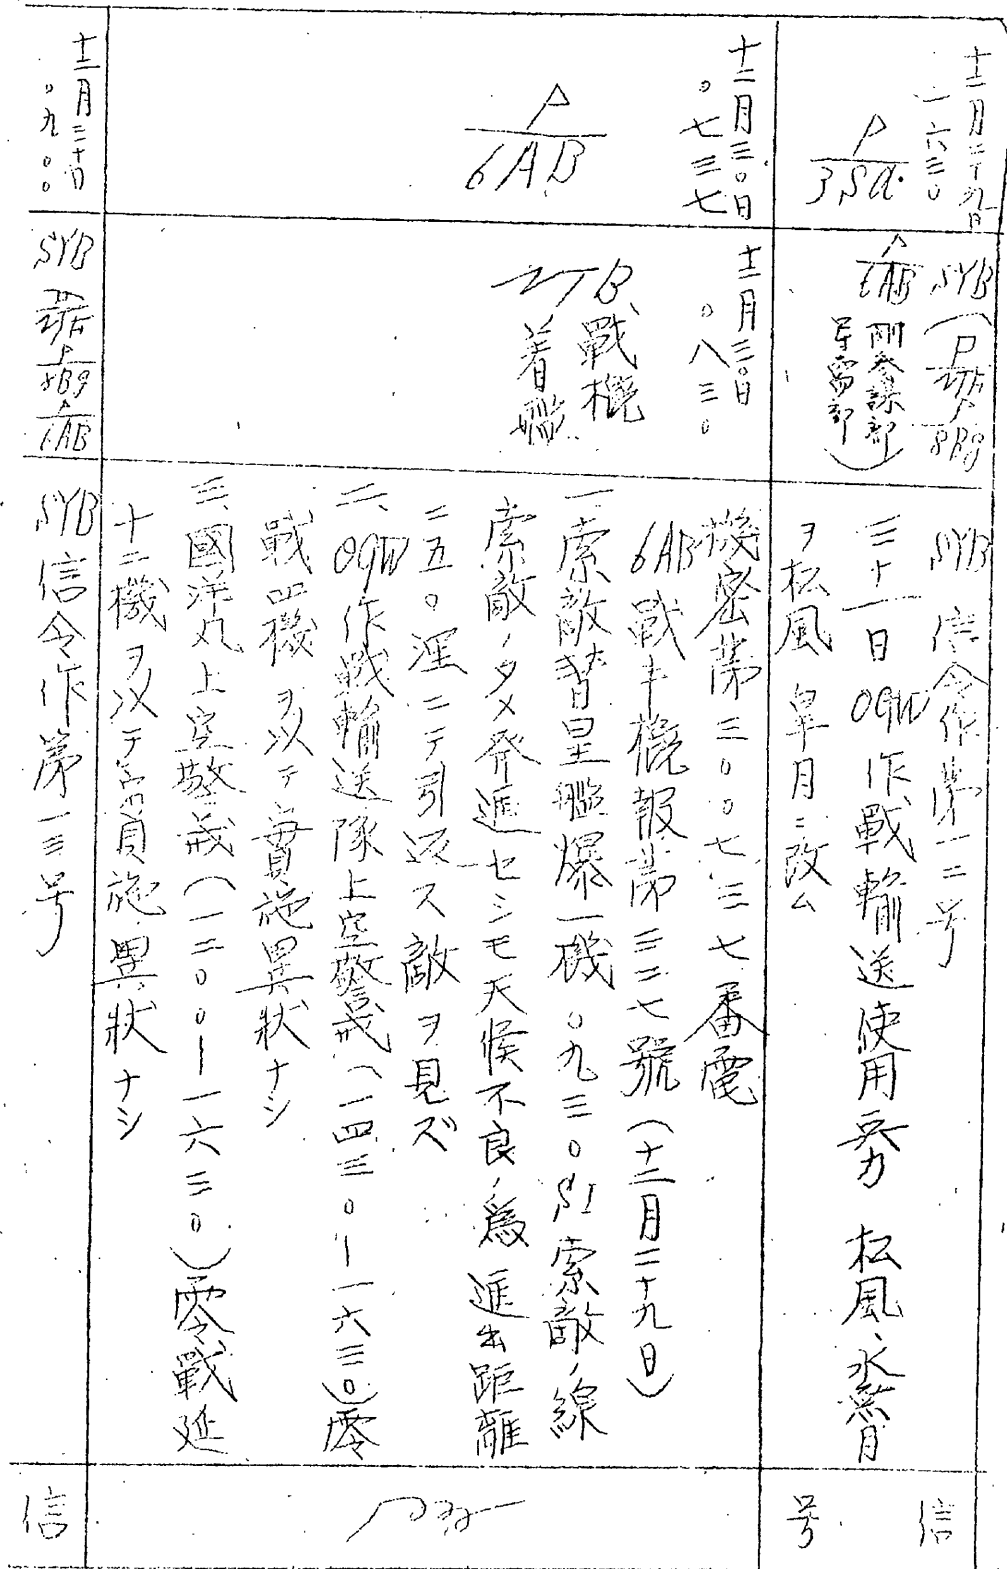 十二月二十九日
一六三〇
P
3Sd.
SYB(P
8Bg
P
6AB
副参謀部
SYB 信令作第一二号
三十一日 OGW作戰輸送使用兵力 松風、水無月
ヲ松風 皐月ニ改ム
信
号
十二月三〇日
〇七三七
P
6AB
十二月三〇日
〇八三〇
B戰概
着艦
機密第三〇〇七三七番電
6AB戰斗概報第三二七號(十二月二十九日)
一、索敵 彗星艦爆一機 〇九三〇 SI索敵ノ線
索敵ノタメ発進セシモ天候不良ノ為 進出距離
二五〇浬ニテ引返ス敵ヲ見ズ
二、OGW作戰輸送隊上空警戒(一四三〇―一六三〇)零
戰四機ヲ以テ實施異状ナシ
三、國洋丸上空警戒(一二〇〇―一六三〇)零戰延
十二機ヲ以テ實施異状ナシ
十二月三十日
〇九〇〇
SYB
P
8Bg
P
6AB
SYB信令作第一三号
信